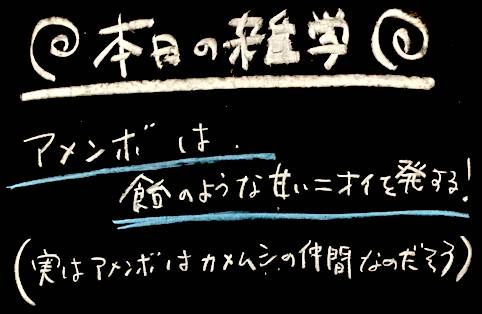 本日の雑学
アメンボは
飴のような甘いニオイを発する!
(実はアメンボはカメムシの仲間なのだそう)